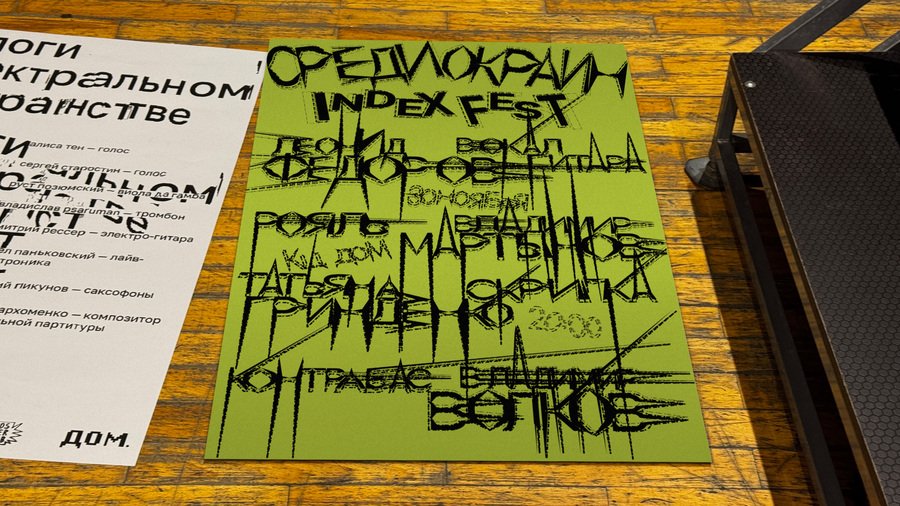 логи
ктральном
ранстве
алиса тен — голос
сергей старостин — голос
руст позюмский — виола да гамба
владислав psaruman — тромбон
митрий рессер — электро-гитара
ел паньковский — лайв-
троника
й пикунов — саксофоны
архоменко — композитор
льной партитуры
дом.
СРЕДИ ОКРАИН
INDEX FEST
ЛЕОНИД ВОКАЛ
ФЕДОСОВ ГИТАРА
30 НОЯБРЯ
РОЯЛЬ ВЛАДИМИР
КЦ ДОМ МАРТЫНОВ
ТАТЬЯНА СКРИПКА
ГРИНДЕНКО 20:00
КОНТРАБАС ВЛАДИМИР
ВОЛКОВ